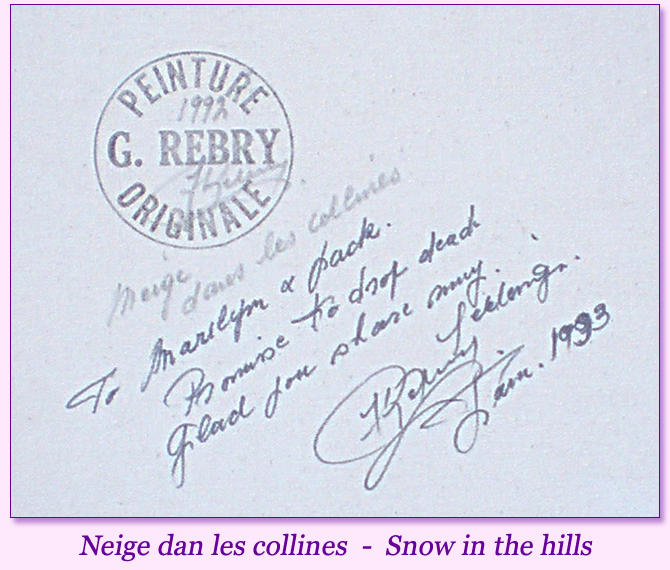 PEINTURE
1992
G. REBRY
ORIGINALE
Neige
dans les collines
To Marilym & Jack.
Promise to drop dead
Glad you share my
Jan. 1993
Neige dan les collines - Snow in the hills